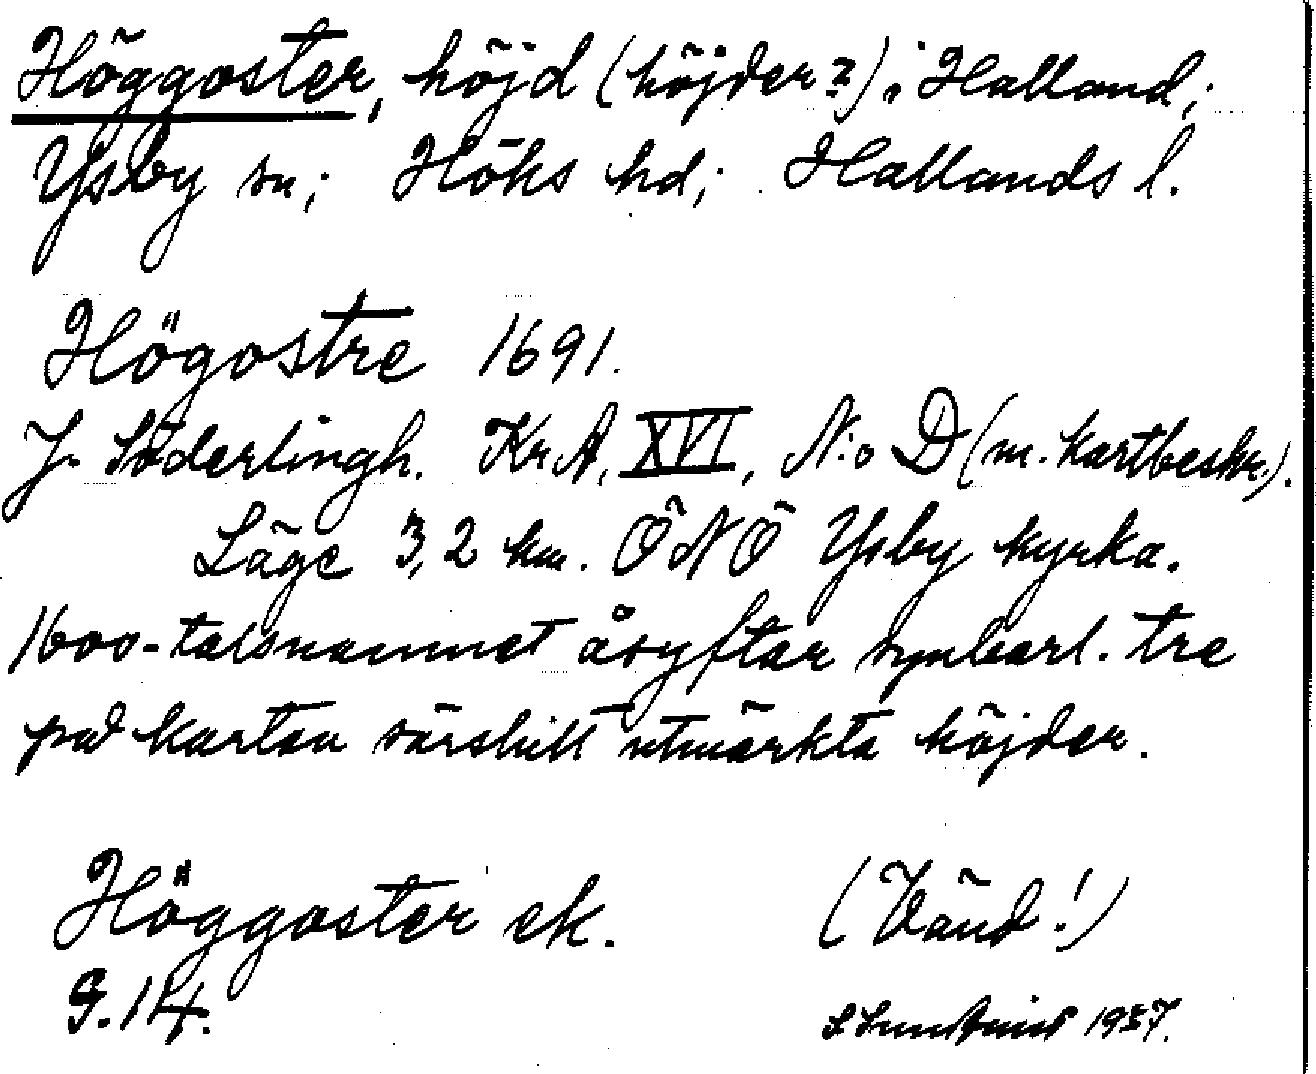 Höggoster, höjd (höjder?), Halland;
Ysby sn; Höks hd; Hallands l.
Högostre 1691.
J. Söderlingh. Kr A, XVI, N:o D (m. kartbeskr.).
Läge 3,2 km. ÖNÖ Ysby kyrka.
1600-talsnamnet åsyftar synbarl. tre
på kartan särskilt utmärkta höjder.
Höggoster ek. (Vänd!)
S. 114.
1937.